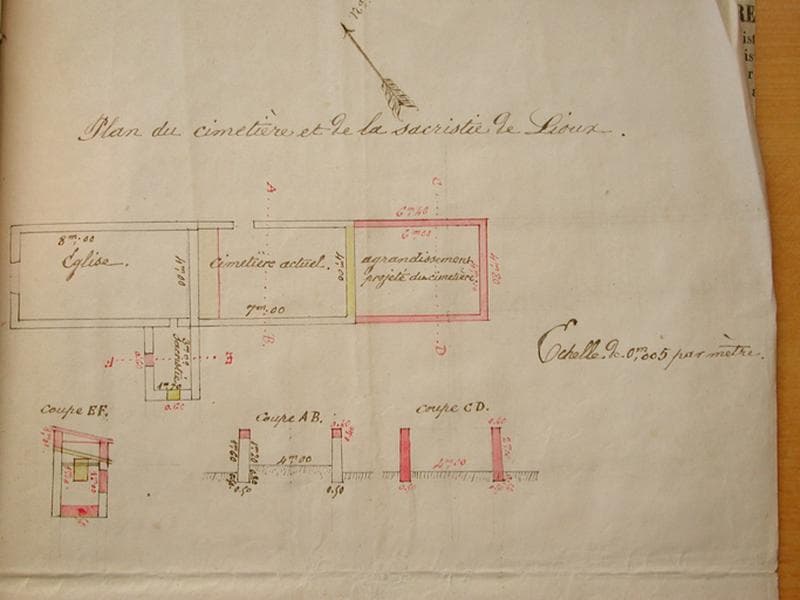 Plan du cimetière et de la sacristie de Lioux.
A
C
6m40
6m00
8m.00
Église.
4m00
Cimetière actuel.
4m00
agrandissement
projeté du cimetière
4m80
7m.00
B
D
F
E
Sacristie
1m70
0.60
Echelle de 0m,005 par mètre.
Coupe EF.
Coupe AB.
Coupe CD.
4m00
4m00
0.50
0.50